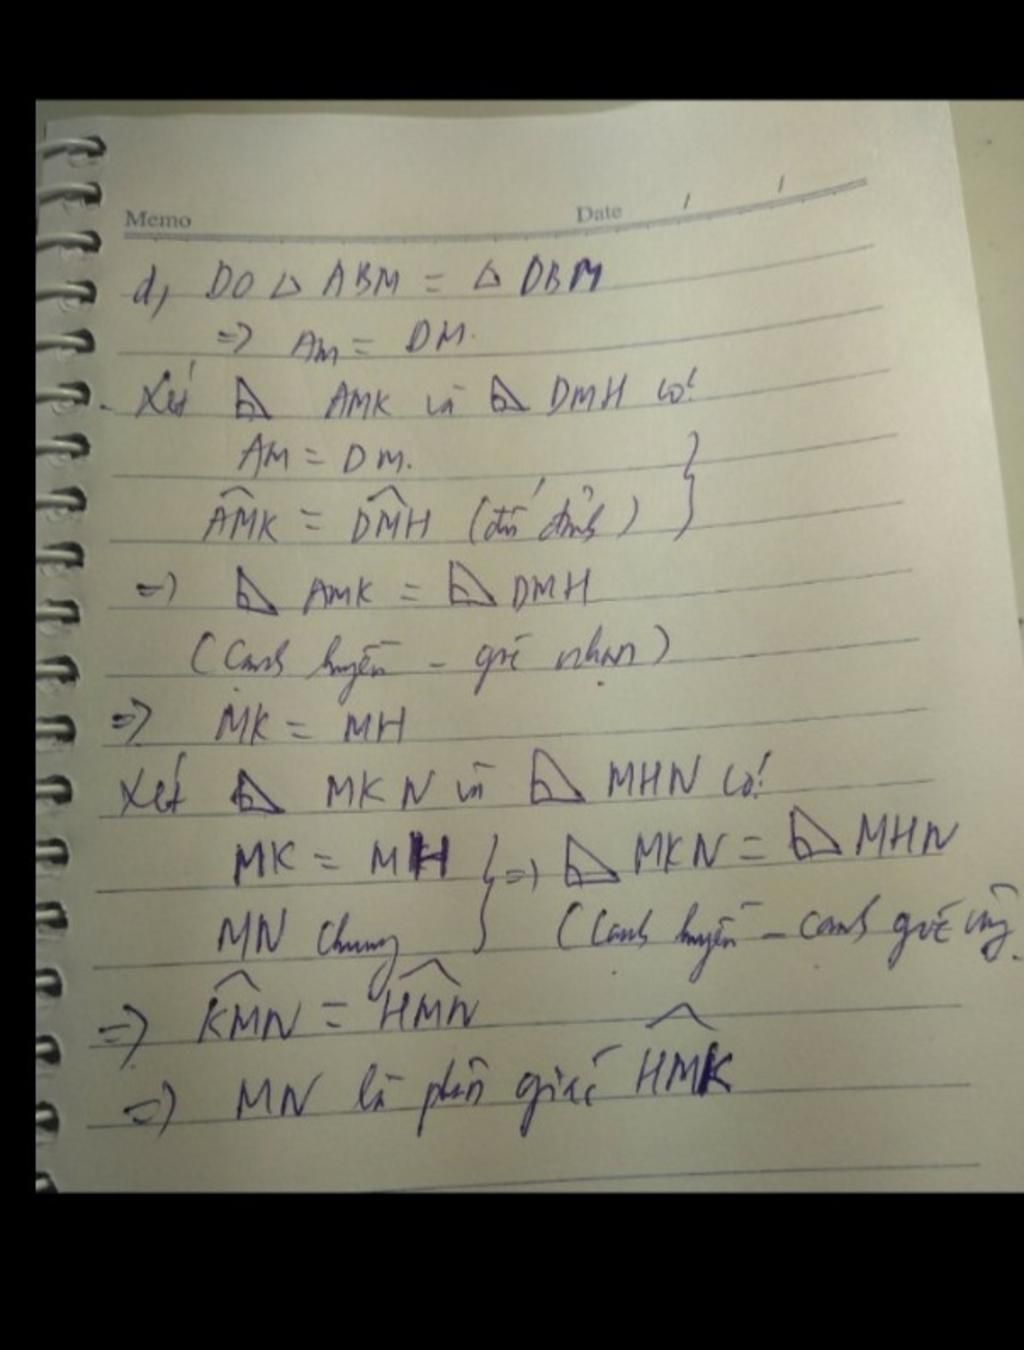 Memo Date / /
d, Do △ ABM = △ DBM
=> AM = DM.
Xét ◺ AMK và ◺ DMH có:
AM = DM.
\widehat{AMK} = \widehat{DMH} (đối đỉnh) }
=> ◺ AMK = ◺ DMH
(Cạnh huyền - góc nhọn)
=> MK = MH
Xét ◺ MKN và ◺ MHN có:
MK = MH } => ◺ MKN = ◺ MHN
MN chung } (Cạnh huyền - cạnh góc vuông
=> \widehat{KMN} = \widehat{HMN}
=> MN là phân giác \widehat{HMK}